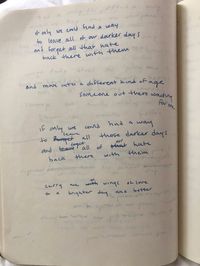 if only we could find a way
to leave all of our darker days
and forget all that hate
back there with them
and move into a different kind of age
someone out there waiting
for me
if only we could find a way
to leave all those darker days
and forget all of our hate
back there with them
carry me with wings of love
to a brighter day and better